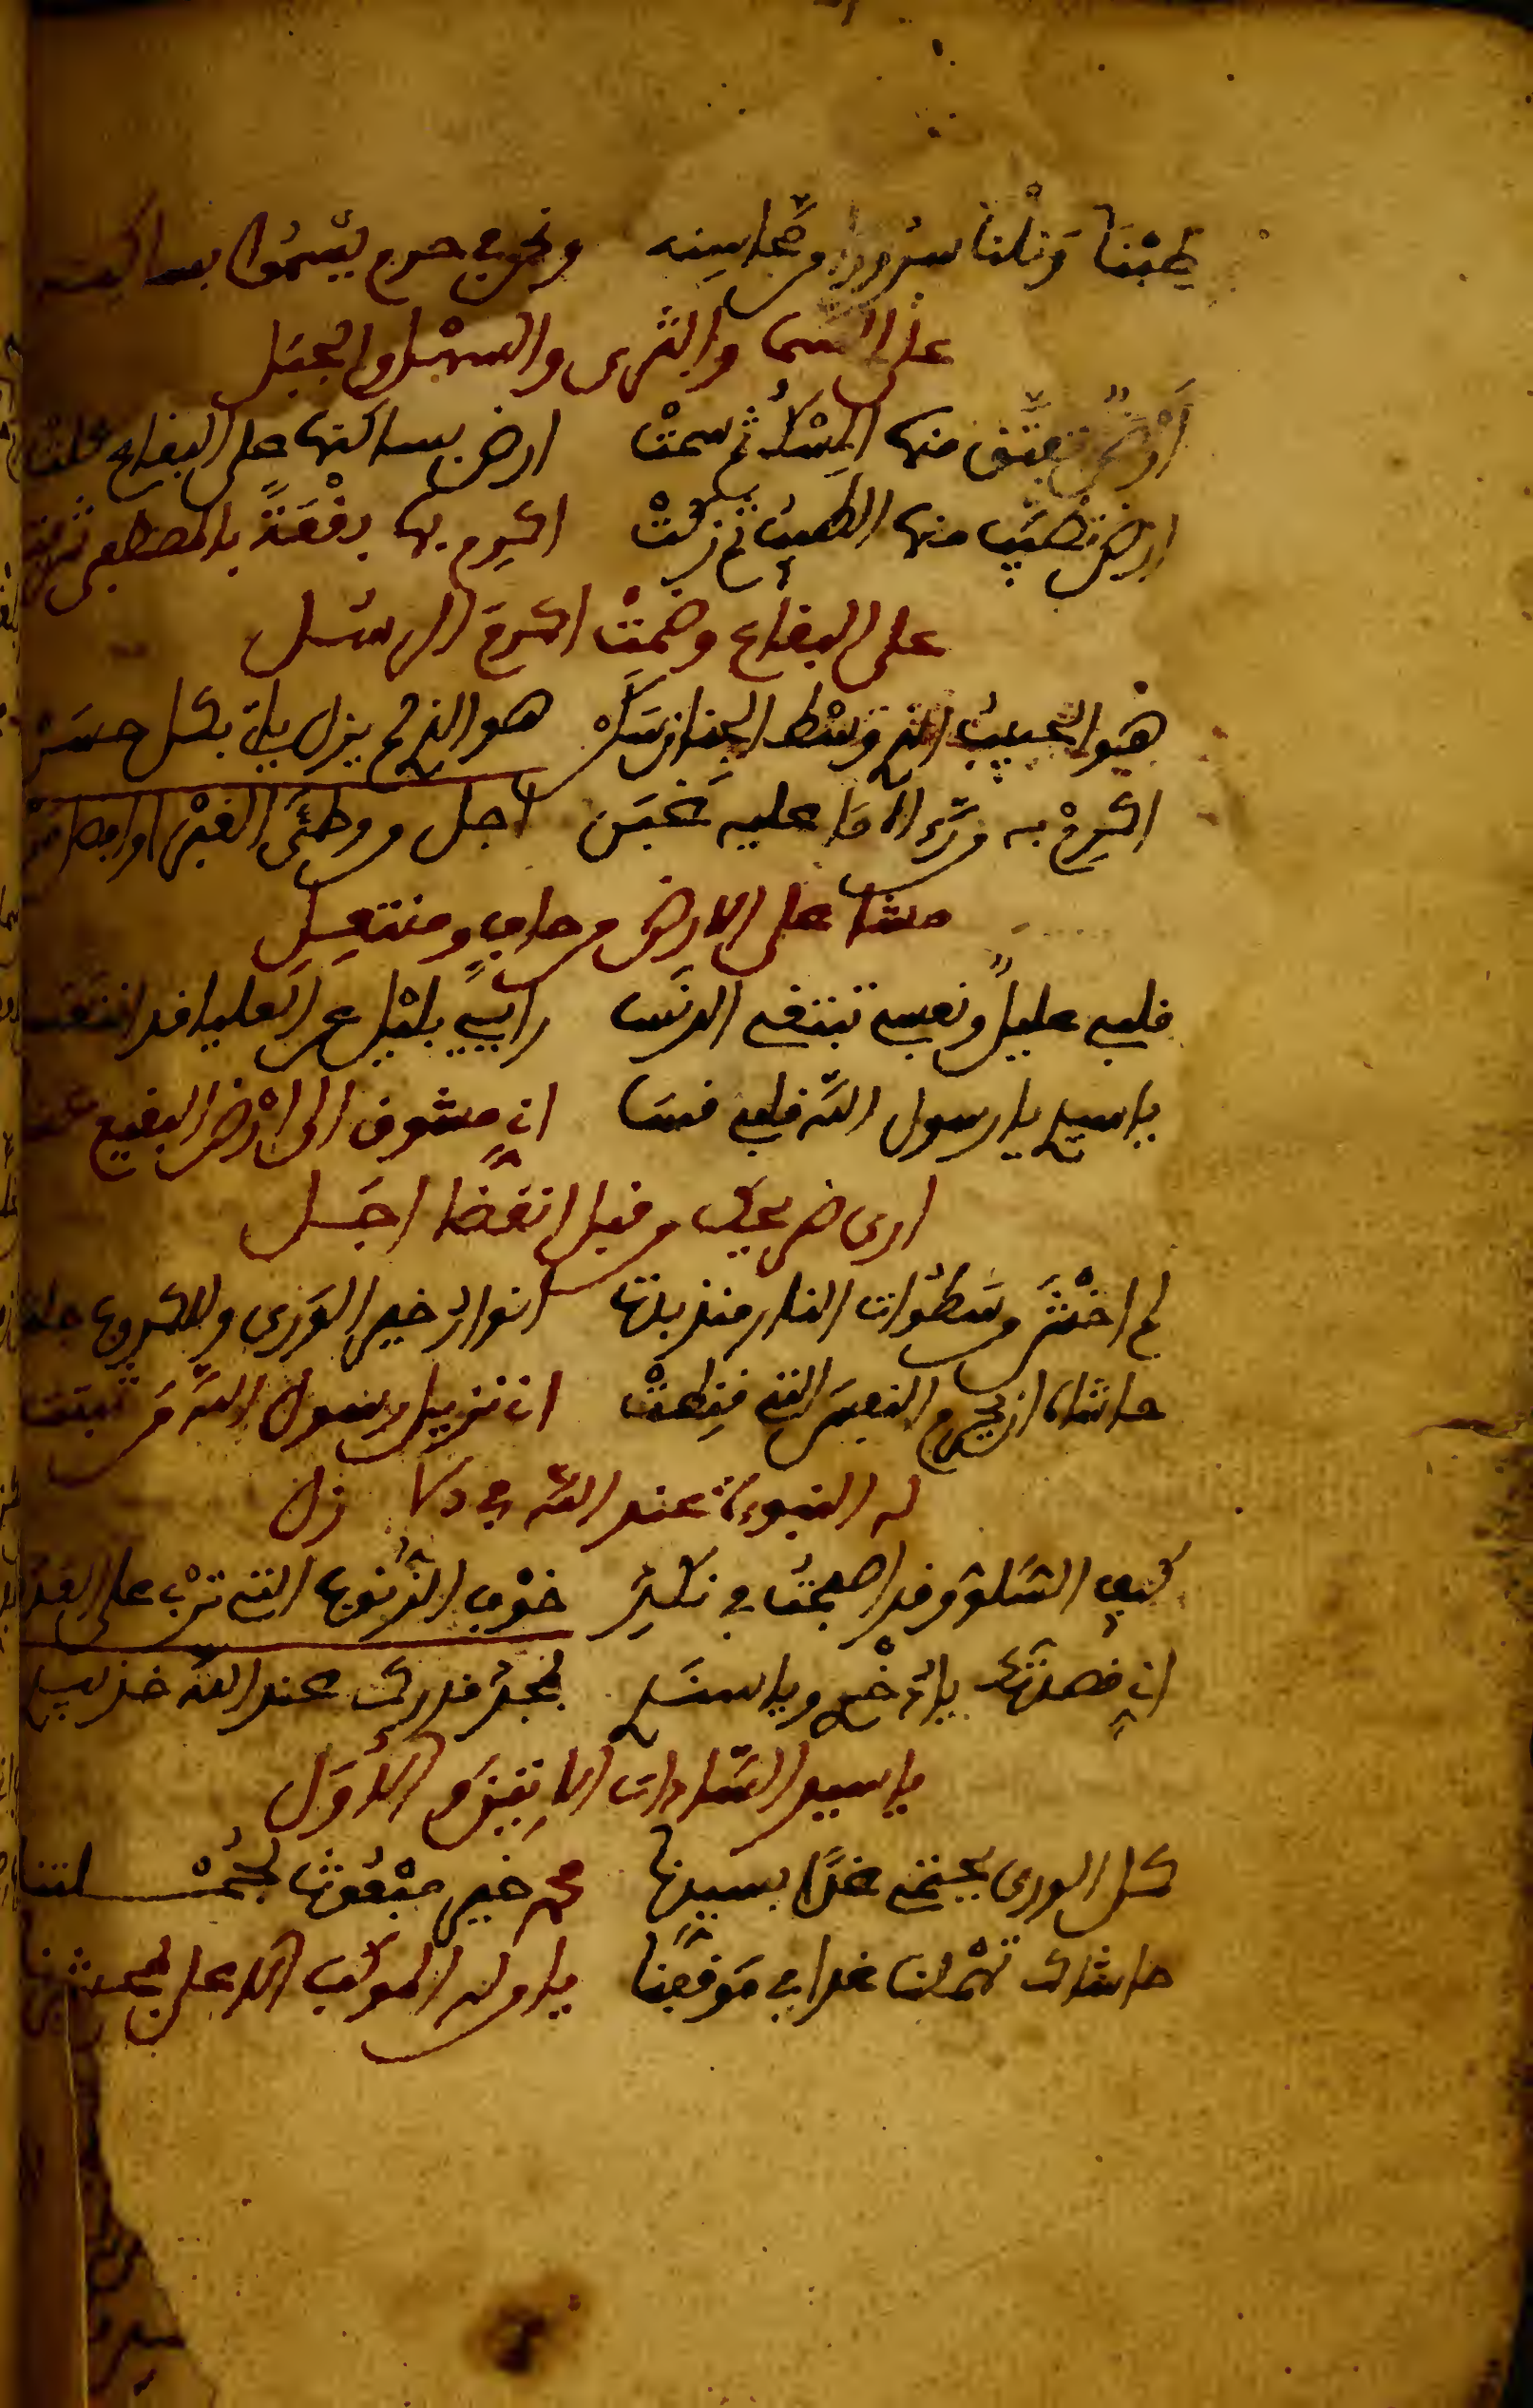 طِبْنَا وَنلْنَا سُرُورًا من محاسنه ونحن في حرم يسموا بساكنه
على السما والثرى والسهل والجبل
أرض تعبّق منها المسك ثم سمتْ ارض بساكنها على البقاع علت
ارض تطيّب منها الطيب ثم زكتْ اكرم بها بقْعَةً بالمصطفى شرفت
على البقاع وضمتْ اكرمَ الرسُل
هو الحبيبُ الذي وسْط الجنان سكنْ هو الذي لم يزل ياتي بكل حسَنْ
اكرِمْ به من علَيه اجل من وطئَ الغبْرا
مشا على الارض من حاف ومنتعِل
قلبي عليلٌ ونفسي تبتغي الدنَسا رايي يليل عن العليا قد
يا سيدي يا رسول الله قلبي قسَا اني مشوق الى ارْض البقيع
ارى ضريحك من قبل انقضا اجَل
لم اخْشَ من سَطوات النار منذ بدتْ انوار خير الوَرى وللكروب
حاشاه ان يحرم النفسَ التي قنِطتْ اني نزيل رسول الله مَن ثبتت
له النبوءة عند الله في ازل
كيف السَلوّ وقد اصبحتُ في نكدِ خوْف الذُنوب التي تربْ على العدد
اني قصدتك يا ذخْري ويا سنَدي بمجد قدرك عند الله خذ بيدي
يا سيد السَّادات الاخِيرَ والاوَل
كل الورى يحتمي غدًا بسيدنا محمد خير مبْعُوث لجُمْلتنا
حاشاك تهْملنا غدا في مَوقفِنَا يا دوله الموكب الاعلى